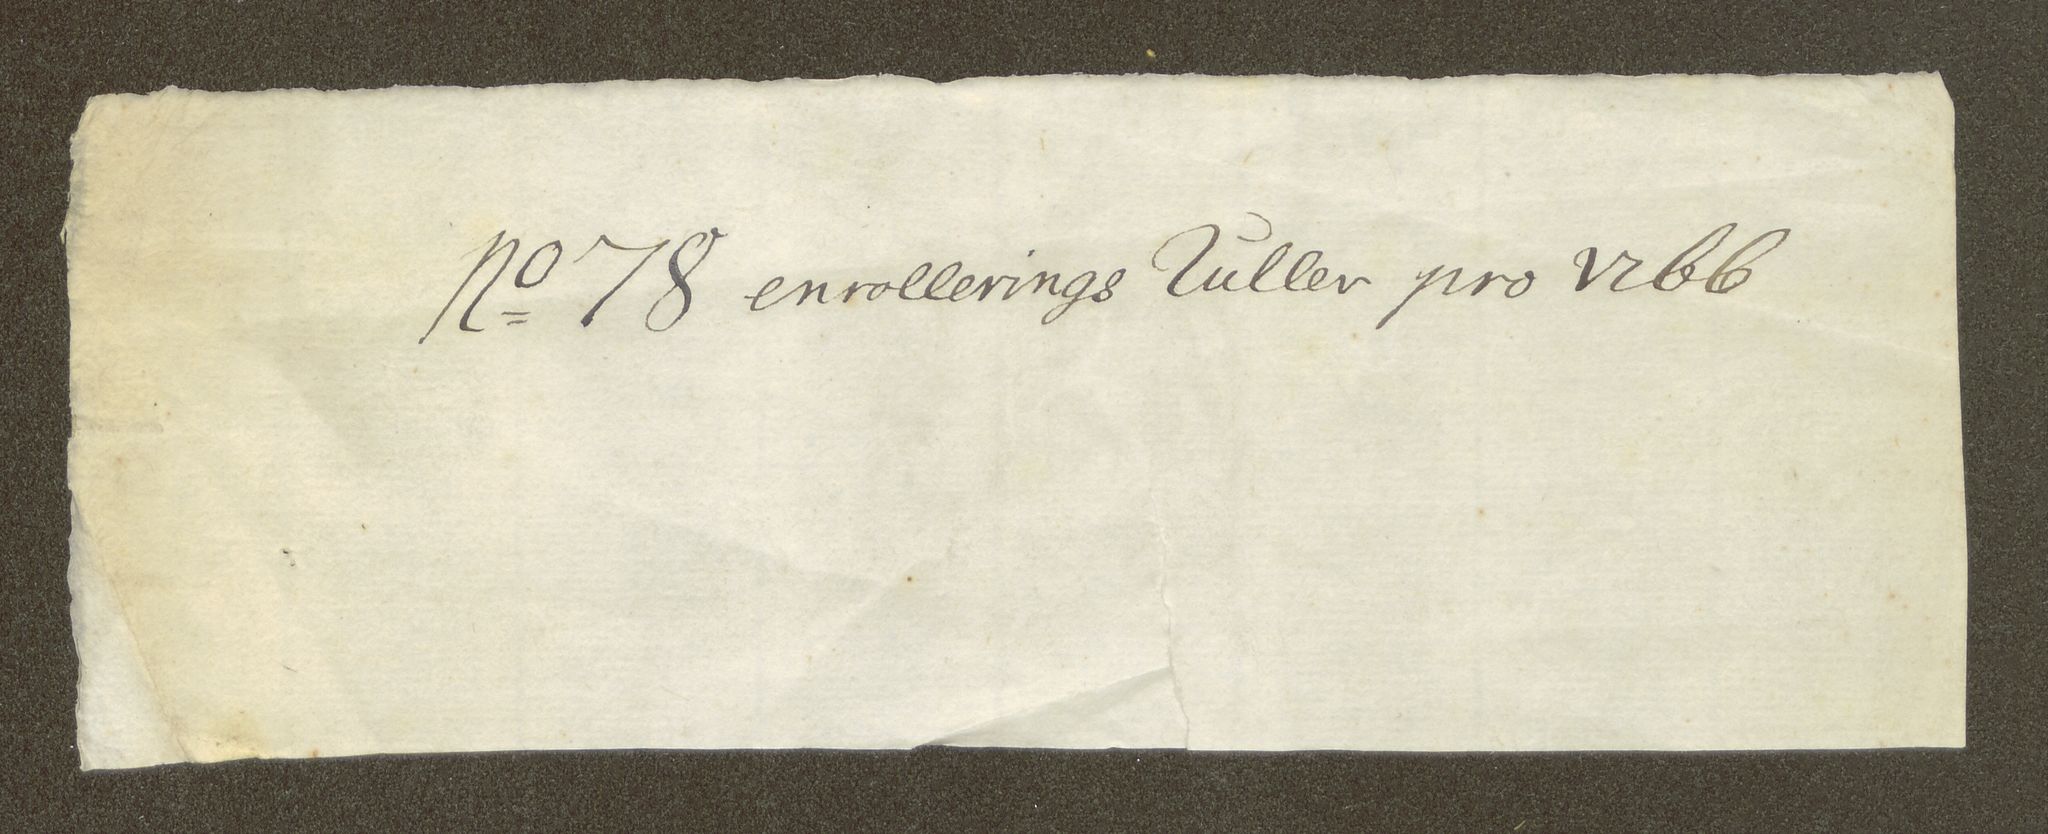 No 78 enrollerings Ruller pro 1766